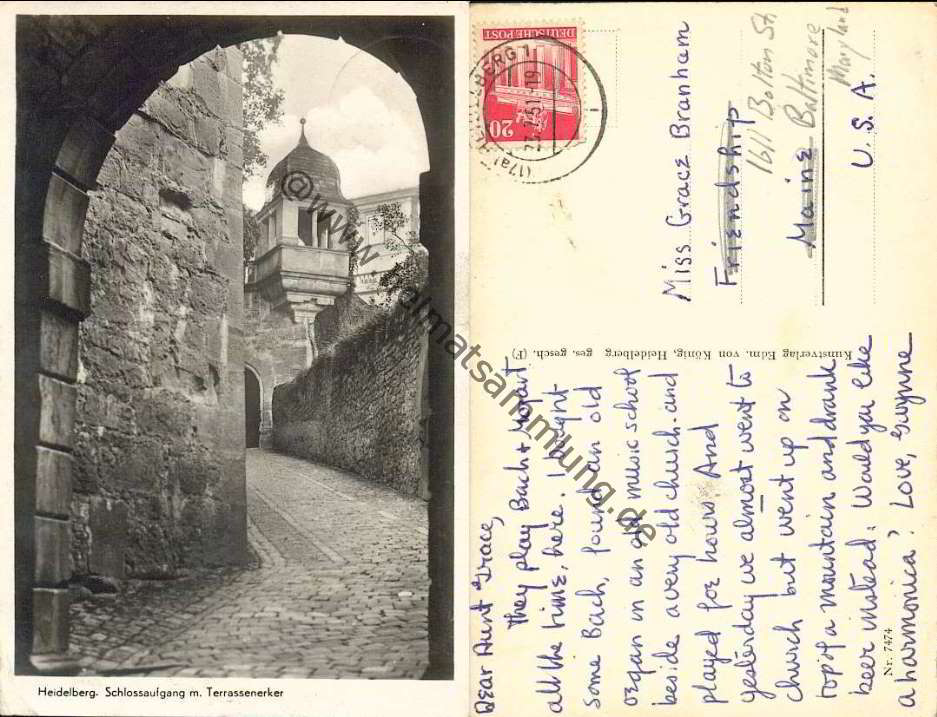 Heidelberg. Schlossaufgang m. Terrassenerker
Dear Aunt Grace,
They play Bach & Mozart
all the time, here. I bought
some Bach, found an old
organ in an old music school
beside a very old church. and
played for hours. And
yesterday we almost went to
church but went up on
top of a mountain and drank
beer instead. Would you like
a harmonica? Love, Gwynne
Nr. 7474
Kunstverlag Edm. von König, Heidelberg ges. gesch. (F)
DEUTSCHE POST
20
(17a) HEIDELBERG 1
Miss Grace Branham
Friendship
1611 Bolton St
Maine Baltimore
Maryland
U. S. A.
@www.heimatsammlung.de